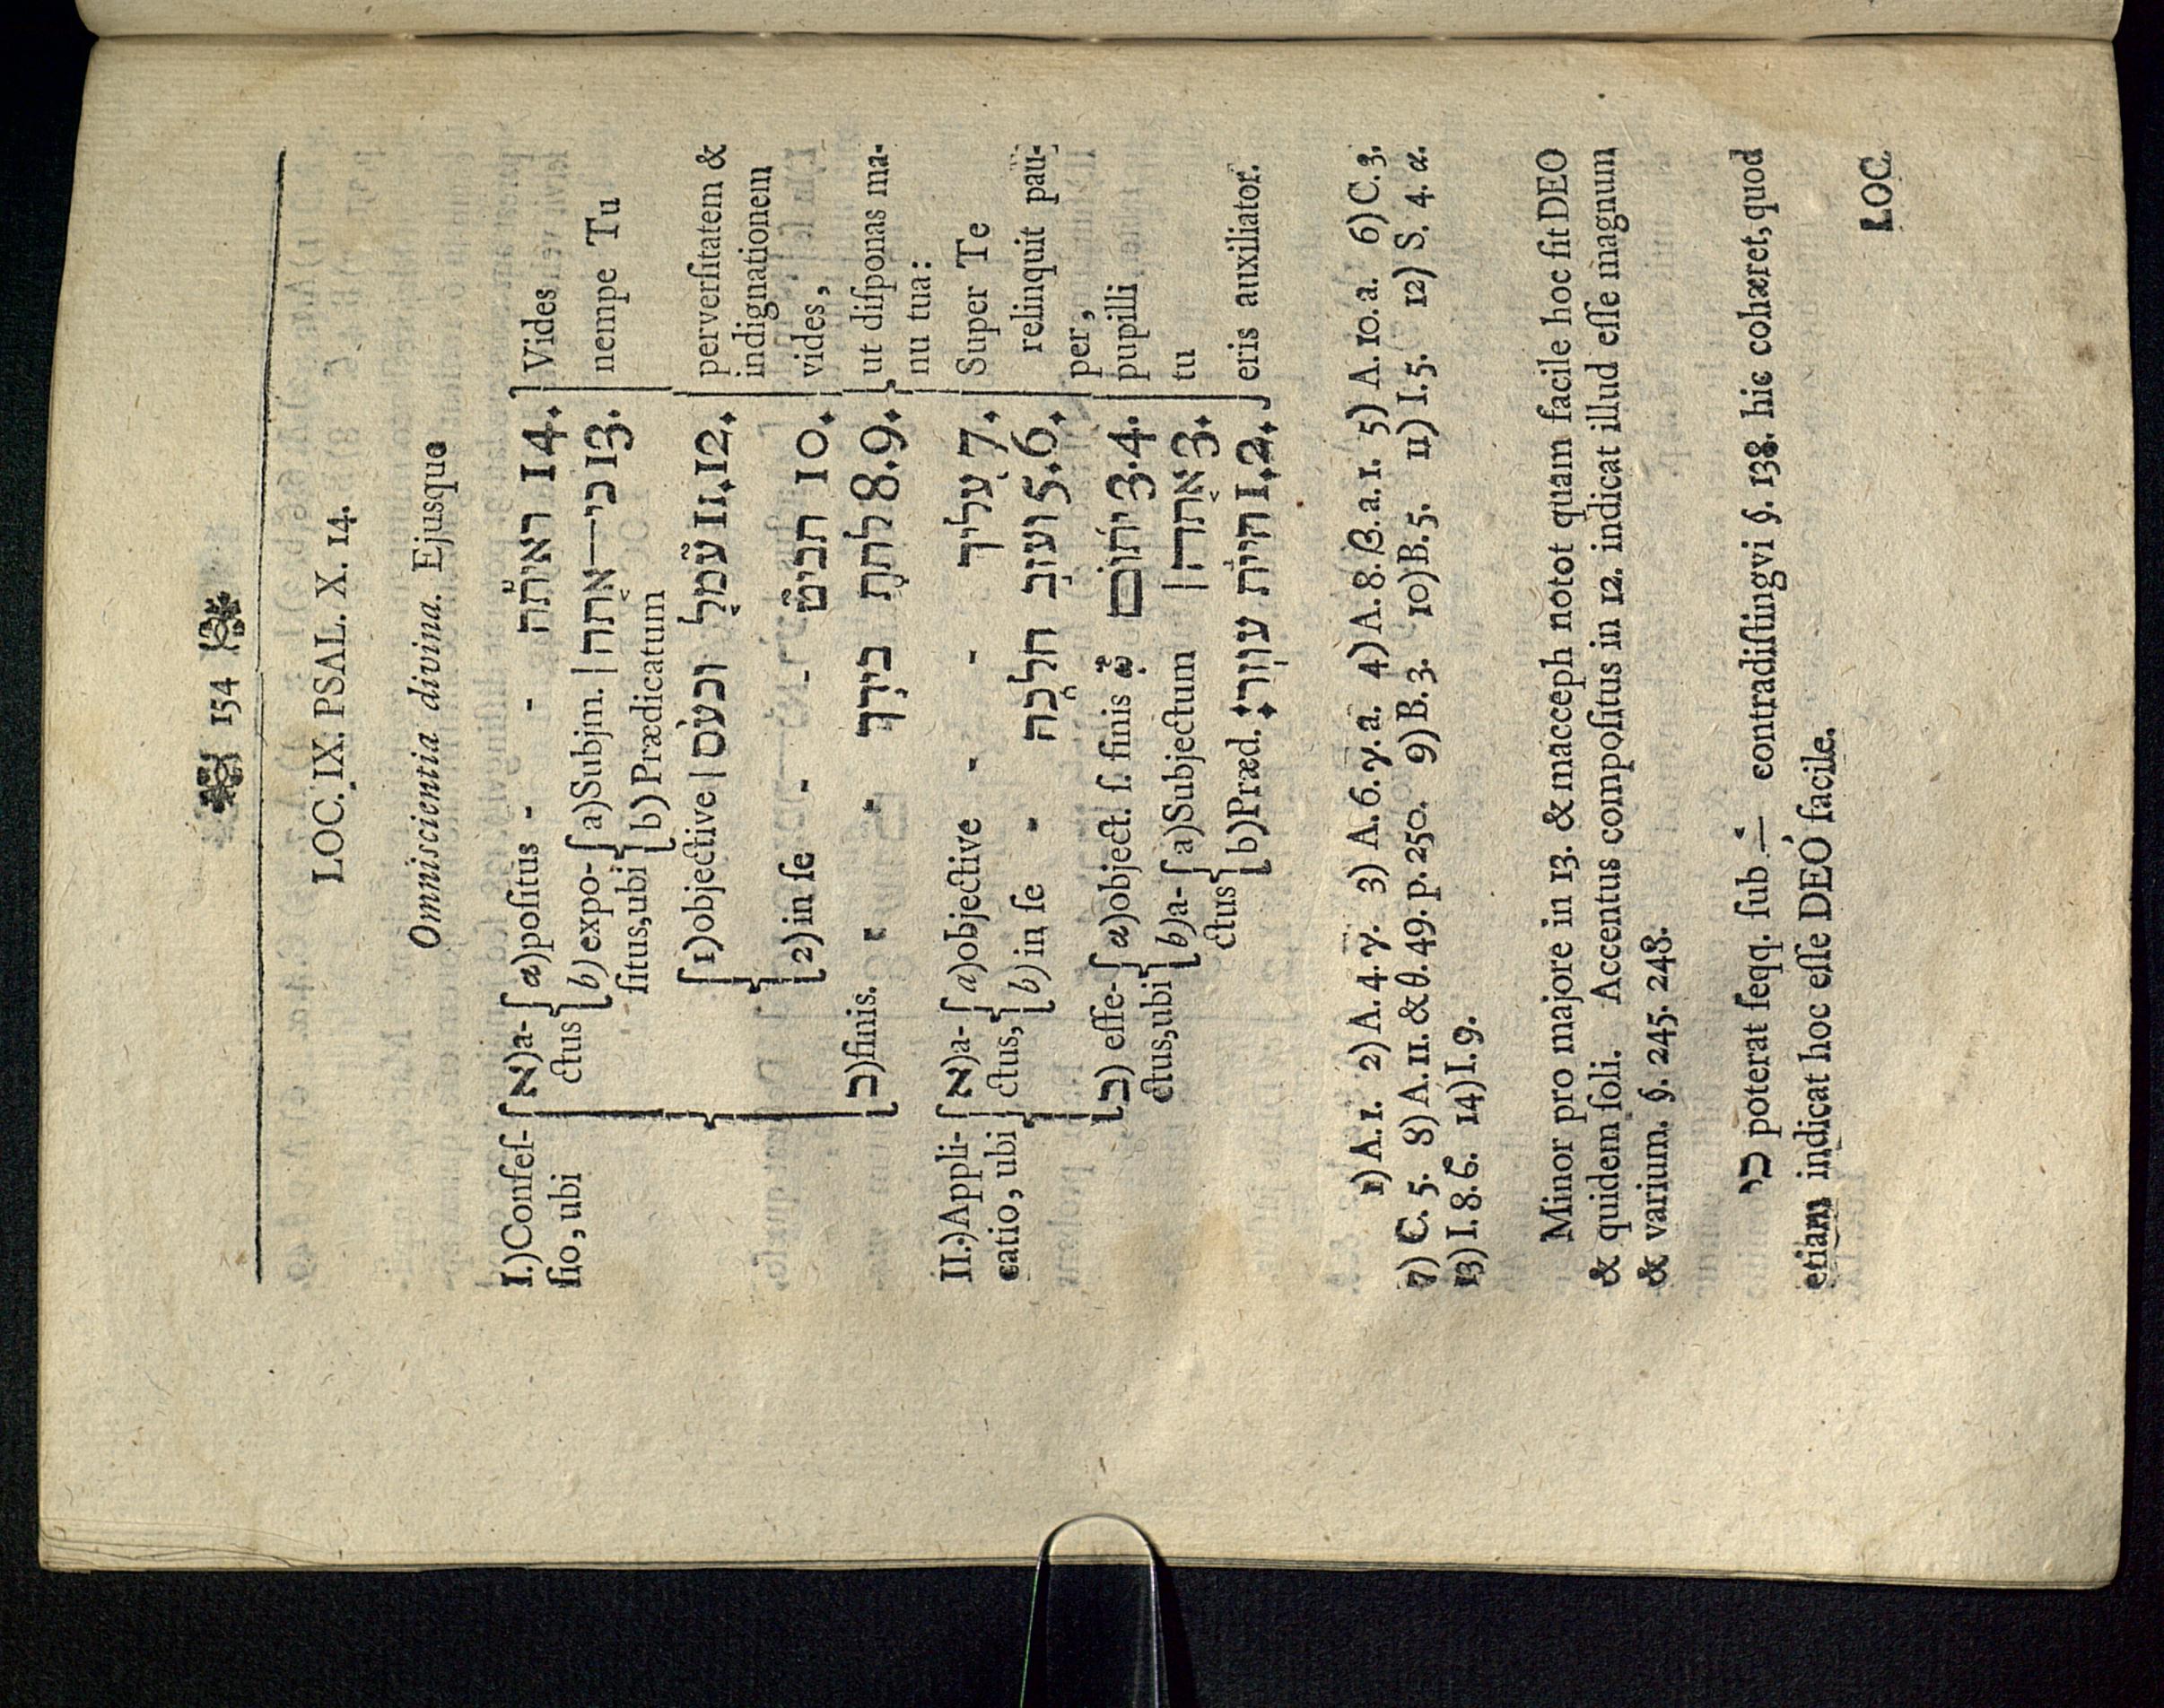 154
LOC. IX. PSAL. X. 14.
Omniscientia divina. Ejusque
I.) Confeſ- א) a- a) poſitus - - ראיתה 14. Vides
ſio, ubi ctus b) expo- a) Subjm. כי—אתה| 13. nempe Tu
ſitus, ubi b) Prædicatum
1) objective עמל וכעס| 11. 12. perverſitatem &
indignationem
2) in ſe - - תביט 10. vides,
ב) finis. - - לתת בידך 8. 9. ut diſponas ma-
nu tua:
II.) Appli- א) a- a) objective - - עליך 7. Super Te
catio, ubi ctus, b) in ſe - יעזב חלכה 5. 6. relinquit pau-
per,
ב) effe- a) object. ſ. finis יתום 3. 4. pupilli
ctus, ubi b) a- a) Subjectum אתה| 3. tu
ctus b) Præd. היית עוזר: 1. 2. eris auxiliator.
1) A. 1. 2) A. 4. γ. 3) A. 6. γ. a. 4) A. 8. β. a. 1. 5) A. 10. a. 6) C. 3.
7) C. 5. 8) A. 11. & θ. 49. p. 250. 9) B. 3. 10) B. 5. 11) I. 5. 12) S. 4. α.
13) I. 8. 6. 14) I. 9.
Minor pro majore in 13. & macceph notot quam facile hoc ſit DEO
& quidem ſoli. Accentus compoſitus in 12. indicat illud eſſe magnum
& varium. §. 245. 248.
כי poterat ſeqq. ſub — contradiſtingvi §. 138. hic cohæret, quod
etiam indicat hoc eſſe DEO facile.
LOC.